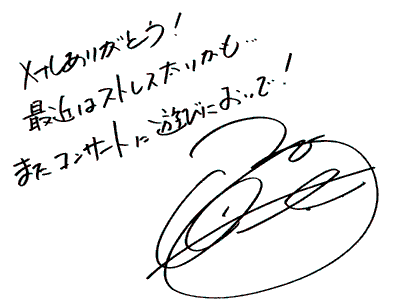 メールありがとう!
最近はストレス太りかも…
またコンサートに遊びにおいで!